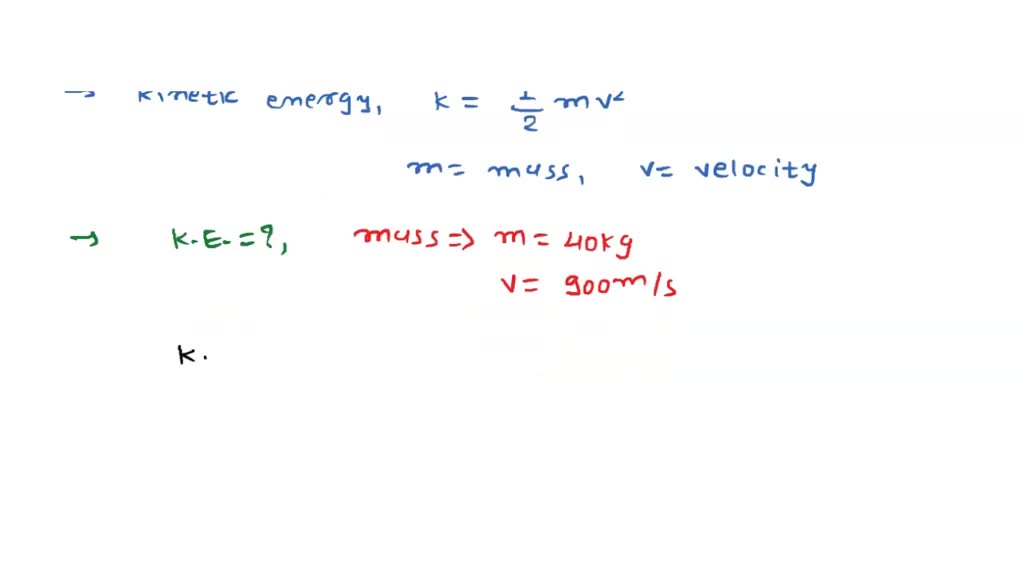 → Kinetic energy, K = 1/2 mv²
m = mass, v = velocity
→ K.E. = ?, mass ⇒ m = 40kg
v = 900m/s
K.